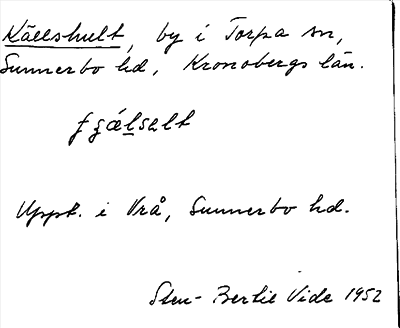 Källshult, by i Torpa sn,
Sunnerbo hd, Kronobergs län.
Uppt. i Vrå, Sunnerbo hd.
Sten-Bertil Vide 1952